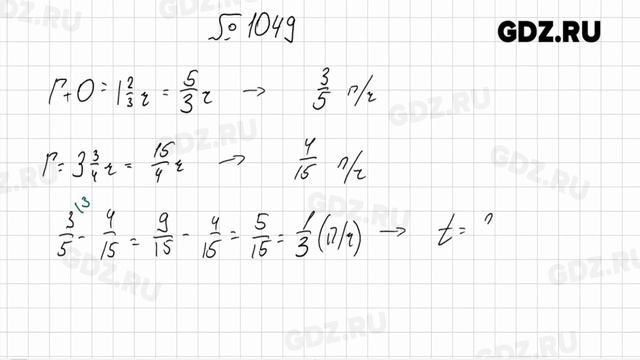 № 1049
GDZ.RU
Г+О = 1 2/3 ч = 5/3 ч → 3/5 п/ч
Г = 3 3/4 ч = 15/4 ч → 4/15 п/ч
3/5 \3 - 4/15 = 9/15 - 4/15 = 5/15 = 1/3 (п/ч) → t =
GDZ.RU
GDZ.RU
GDZ.RU
GDZ.RU
GDZ.RU
GDZ.RU